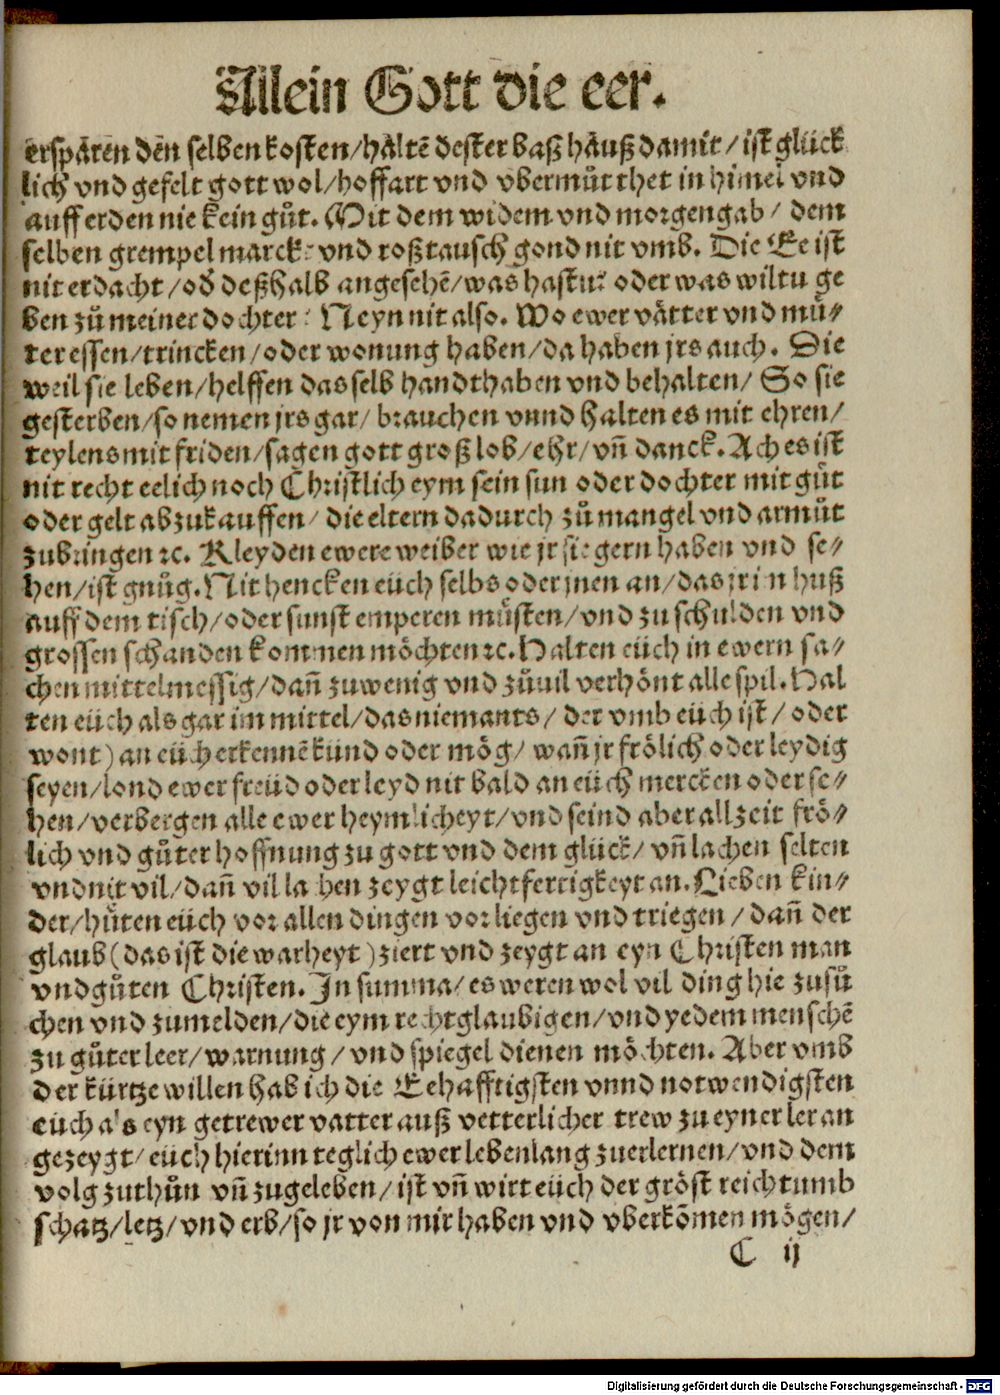 Allein Gott die eer.
ersparen den selben kosten/haltē dester baß hauß damit/ist glück
lich vnd gefelt gott wol/hoffart vnd vbermůt thet in himel vnd
auff erden nie kein gůt. Mit dem widem vnd morgengab/ dem
selben grempel marck: vnd roßtausch gond nit vmb. Die Ee ist
nit erdacht/od̛ deßhalb angesehē/was hastu? oder was wiltu ge
ben zů meiner dochter? Neyn nit also. Wo ewer våtter vnd mů-
ter essen/trincken/oder wonung haben/da haben jrs auch. Die
weil sie leben/helffen das selb handthaben vnd behalten/ So sie
gesterben/so nemen jrs gar/ brauchen vnnd halten es mit ehren/
teylens mit friden/sagen gott groß lob/ehr/vn̄ danck. Ach es ist
nit recht eelich noch Christlich eym sein sun oder dochter mit gůt
oder gelt abzukauffen/ die eltern dadurch zů mangel vnd armůt
zubringen ꝛc. Kleyden ewere weiber wie jr sie gern haben vnd se-
hen/ist gnůg. Nit hencken eüch selbs oder jnen an/das jr in huß
auff dem tisch/oder sunst emperen můsten/vnd zu schulden vnd
grossen schanden kommen möchten ꝛc. Halten eüch in ewern sa-
chen mittelmessig/dañ zuwenig vnd zůuil verhönt alle spil. Hal
ten eüch als gar im mittel/das niemants/ der vmb eüch ist/ oder
wont) an eüch erkennē künd oder mög/ wañ jr frölich oder leydig
seyen/lond ewer freüd oder leyd nit bald an eüch mercken oder se-
hen/verbergen alle ewer heymlicheyt/vnd seind aber allzeit frö-
lich vnd gůter hoffnung zu gott vnd dem glück/ vñ lachen selten
vnd nit vil/dañ vil lachen zeygt leichtfertigkeyt an. Lieben kin-
der/hůten eüch vor allen dingen vor liegen vnd triegen/ dañ der
glaub (das ist die warheyt) ziert vnd zeygt an eyn Christen man
vnd gůten Christen. In summa/ es weren wol vil ding hie zusů
chen vnd zumelden/die eym rechtglaubigen/vnd yedem menschē
zu gůter leer/warnung/vnd spiegel dienen möchten. Aber vmb
der kürtze willen hab ich die Eehafftigsten vnnd notwendigsten
eüch als eyn getrewer vatter auß vetterlicher trew zu eyner ler an
gezeygt/eüch hierinn teglich ewer lebenlang zuerlernen/vnd dem
volg zuthůn vñ zugeleben/ist vñ wirt eüch der gröst reichtumb
schatz/letz/vnd erb/so jr von mir haben vnd vberkōmen mögen/
C ij
Digitalisierung gefördert durch die Deutsche Forschungsgemeinschaft - DFG